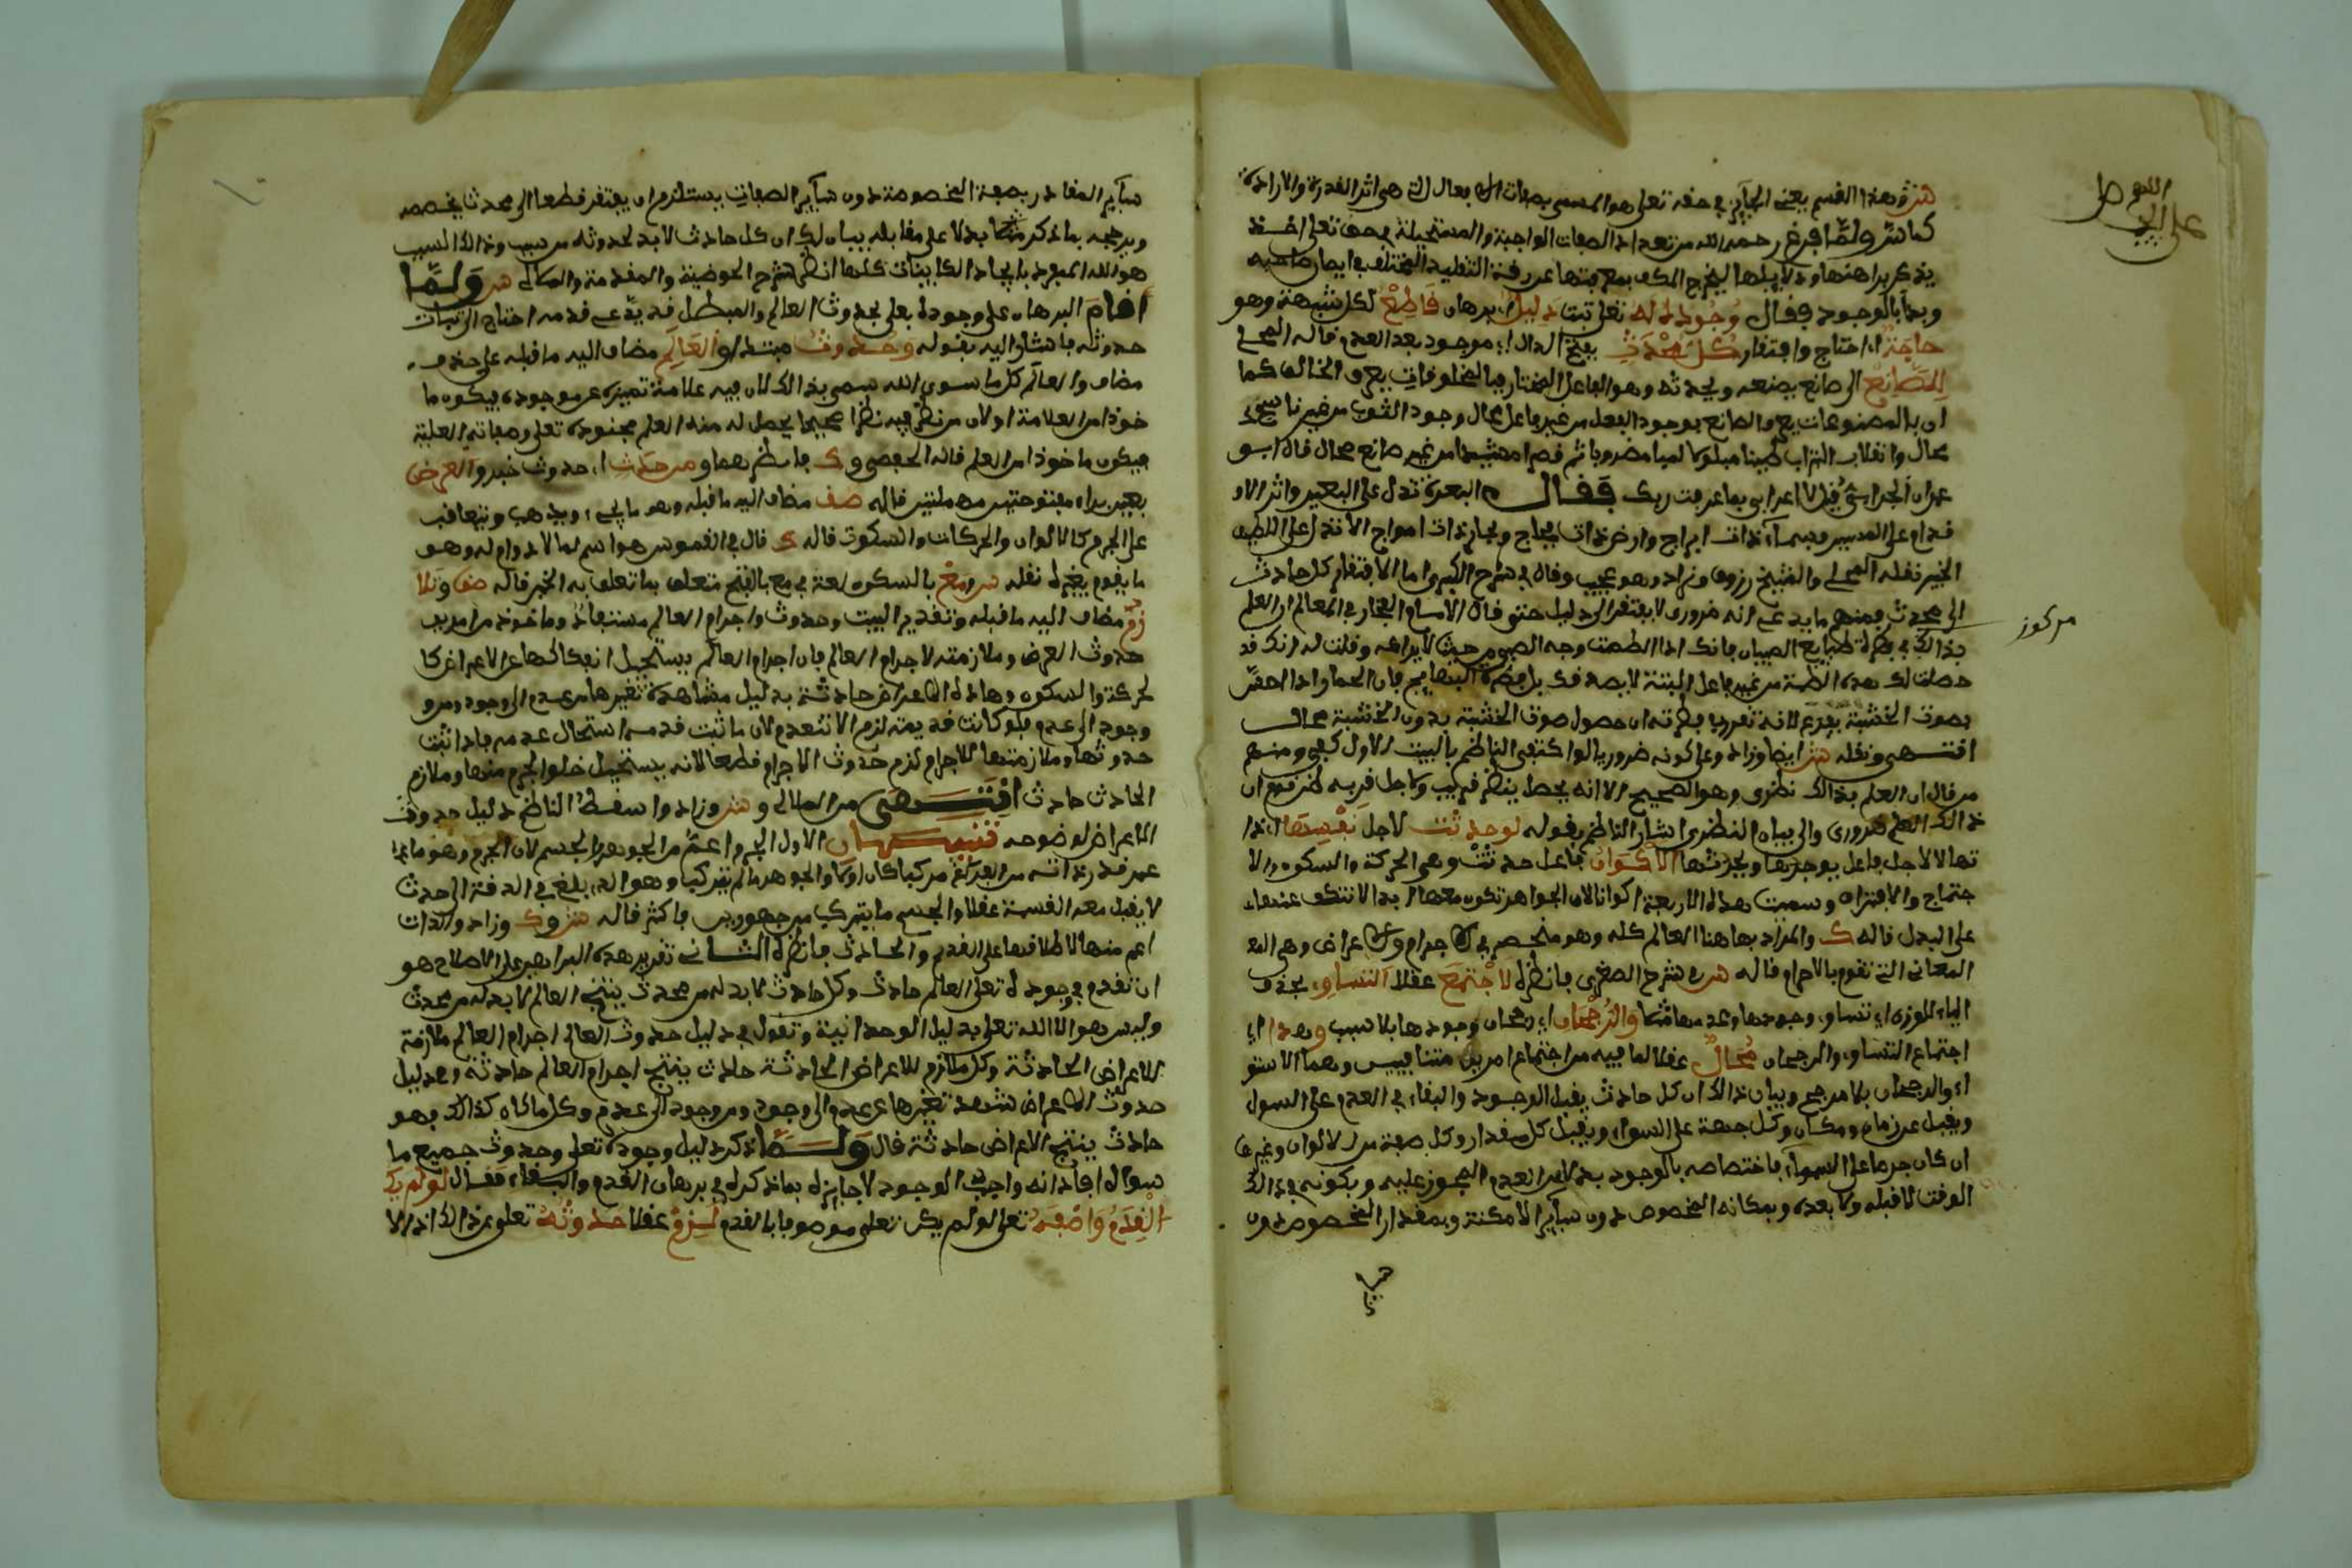 اللهم صل
على الحبيب
شر وهذا القسم يعني الجايز في حقه تعلى هو المسمى بصفات الافعال التي هي اثر القدرة والارادة
كما شر ولما فرغ رحمه الله من تعداد الصفات الواجبة والمستحيلة في حقه تعلى اخذ
يذكر براهنها ودلايلها ليخرج المكلف بمعرفتها عن ربقة التقليد المختلف في ايمان صاحبه
وبدأ بالوجود فقال وجوده له تعلى ثبت دليل اي برهان قاطع لكل شبهة وهو
حاجة اي احتياج وافتقار كل محدث بفتح الدال اي موجود بعد العدم قاله
للصانع الى صانع يصنعه ويحدثه وهو الفاعل المختار فبالمخلوقات يعرف الخالق كما
ان بالمصنوعات يعرف الصانع فوجود الفعل من غير فاعل محال وجود الثوب من غير ناسج
محال وانقلاب التراب طينا مبلولا لبنا مضروبا ثم قصرا مشيدا من غير صانع محال قال ابو
عمران الجرائي قيل لاعرابي بما عرفت ربك فقال البعرة تدل على البعير واثر الا
قدام على المسير فسماء ذات ابراج وارض ذات فجاج وبحار ذات امواج الا تدل على اللطيف
الخبير نقله والشيخ زروق وزاد وهو عجيب وقال في شرح الكبير واما الافتقار كل حادث
الى محدث فمنهم ما يدعي انه ضروري لا يفتقر الى دليل حتى قال الامام الفخار في المعالم ان العلم
مركوز
بذلك في فطرة طبايع الصبيان فانك اذا لطمت وجه الصبي من حيث لا يراك وقلت له انك قد
حصلت لك هذه اللطمة من غير فاعل البتة لا يصدقك بل فطرة البهايم فان الحمار اذا احس
بصوت الخشبة يفزع لانه تقرر في فطرته ان حصول صوت الخشبة بدون الخشبة محال
انتهى ونقله شر ايضا وزاد وعلى كونه ضروريا لو اكتفى الناظم بالبيت الاول كفى ومنهم
من قال ان العلم بذلك نظري وهو الصحيح الا انه يحصل بنظر قريب ولاجل قربه ظن قوم ان
ذلك العلم ضروري والى بيان النظري اشار الناظم بقوله لو حدثت لاجل نفسها لذا
تها لا لاجل فاعل يوجدها ويحدثها الاكوان فاعل حدثت وهي الحركة والسكون والا
جتماع والافتراق وسميت هذه الاربعة اكوانا لان الجواهر تكون معها ابدا لا تنفك عنها
على البدل قاله ك والمراد بها هنا العالم كله وهو منحصر في الاجرام والاعراض وهي
المعاني التي تقوم بالاجرام قاله شر في شرح الصغرى فانظره لاجتمع عقلا التساوي بحذف
الياء للوزن اي تساوي وجودها وعدمها والرجحان اي رجحان وجودها بلا سبب وهذا اي
اجتماع التساوي والرجحان محال عقلا لما فيه من اجتماع امرين متنافيين وهما الاستو
اء والرجحان بلا مرجح وبيان ذلك ان كل حادث يقبل الوجود والبقاء في العدم على السواء
ويقبل عن زمان ومكان وكل جهة على السواء ويقبل كل مقدار وكل صفة من الالوان وغيرها
ان كان جرما على السواء فاختصاصه بالوجود بدلا من العدم المجوز عليه وبكونه في ذلك
الوقت لا قبله ولا بعده وبمكانه المخصوص دون ساير الامكنة وبمقدار المخصوص دون
ساير المقادر بصفة المخصوصة دون ساير الصفات يستلزم ان يفتقر قطعا الى محدث يخصصه
ويرجحه بما ذكر بدلا على مقابله فبان لك ان كل حادث لا بد لحدوثه من سبب وذلك السبب
هو الله المنفرد بايجاد الكاينات كلها انظر شرح الحوضية والمقدمة والكمال شر ولما
اقام البرهان على وجوده تعلى بحدوث العالم والمبطل قد يدعي قدمه احتاج الى اثبات
حدوثه فاشار اليه بقوله وحدوث مبتدا والعالم مضاف اليه ما قبله على حذف
مضاف والعالم كل ما سوى الله سمي بذلك لان فيه علامة تميزه عن موجوده فيكون ما
خوذا من العلامة او لان من نظر فيه نظرا صحيحا يحصل له منه العلم بوجوده تعلى وصفاته العلية
فيكون ماخوذا من العلم قاله الحفصي و ك فانظرهما ومن حدث اي حدوث خبر والعرض
بعين وراء مفتوحتين مهملتين قاله صف مضاف اليه ما قبله وهو ما يجيء ويذهب ويتعاقب
على الجرم كالالوان والحركات والسكون قاله ك قال في القموس هو اسم لما لا دوام له وهو
ما يقوم بغيره نقله شر ومع بالسكون لغة في مع بالفتح متعلق بما تعلق به الخبر قاله صف وتلا
زم مضاف اليه ما قبله وتقدير البيت وحدوث اجرام العالم مستفاد وماخوذ من امرين
حدوث العرض وملازمته لاجرام العالم فان اجرام العالم يستحيل انفكاكها عن الاعراض كا
لحركة والسكون وهاذه الاعراض حادثة بدليل مشاهدة تغيرها من عدم الى وجود ومن
وجود الى عدم فلو كانت قديمة لزم الا تنعدم لان ما ثبت قدمه استحال عدمه فاذا ثبت
حدوثها وملازمتها للاجرام لزم حدوث الاجرام قطعا لانه يستحيل خلو الجرم منها وملازم
الحادث حادث انتهى من الهلالي و شر وزاد واسقط الناظم دليل حدوث
الاعراض لوضوحه تنبيهان الاول الجرم اعم من الجوهر والجسم لان الجرم وهو ما
عمر قدر ذاته من الفراغ مركبا كان او لا والجوهر ما لم يتركب وهو الذي بلغ في الدقة الى حدث
لا يقبل معه القسمة عقلا والجسم ما يتركب من جوهرين فاكثر قاله شر و ك وزاد والذات
اعم منها لاطلاقها على القديم والحادث فانظره الثاني تقرير هذه البراهين على الاصلاح هو
ان تقدم في وجوده تعلى العالم حادث وكل حادث لا بد له من محدث ينتج العالم لا بد له من محدث
وليس هو الا الله تعلى بدليل الوحدانية وتقول في دليل حدوث العالم اجرام العالم ملازمة
للاعراض الحادثة وكل ملازم للاعراض الحادثة حادث ينتج اجرام العالم حادثة وهو دليل
حدوث الاعراض شوهد تغيرها عن عدم الى وجود ومن وجود الى عدم وكل ما كان كذلك فهو
حادث ينتج الاعراض حادثة قال ولما ذكر دليل وجوده تعلى وحدوث جميع ما
سواه افاد انه واجب الوجود لا جايزه بما ذكره في برهان القدم والبقاء فقال لو لم يك
القدم وصفه تعلى لو لم يكن تعلى موصوفا بالقدم لزم عقلا حدوثه تعلى عن ذلك اذ لا